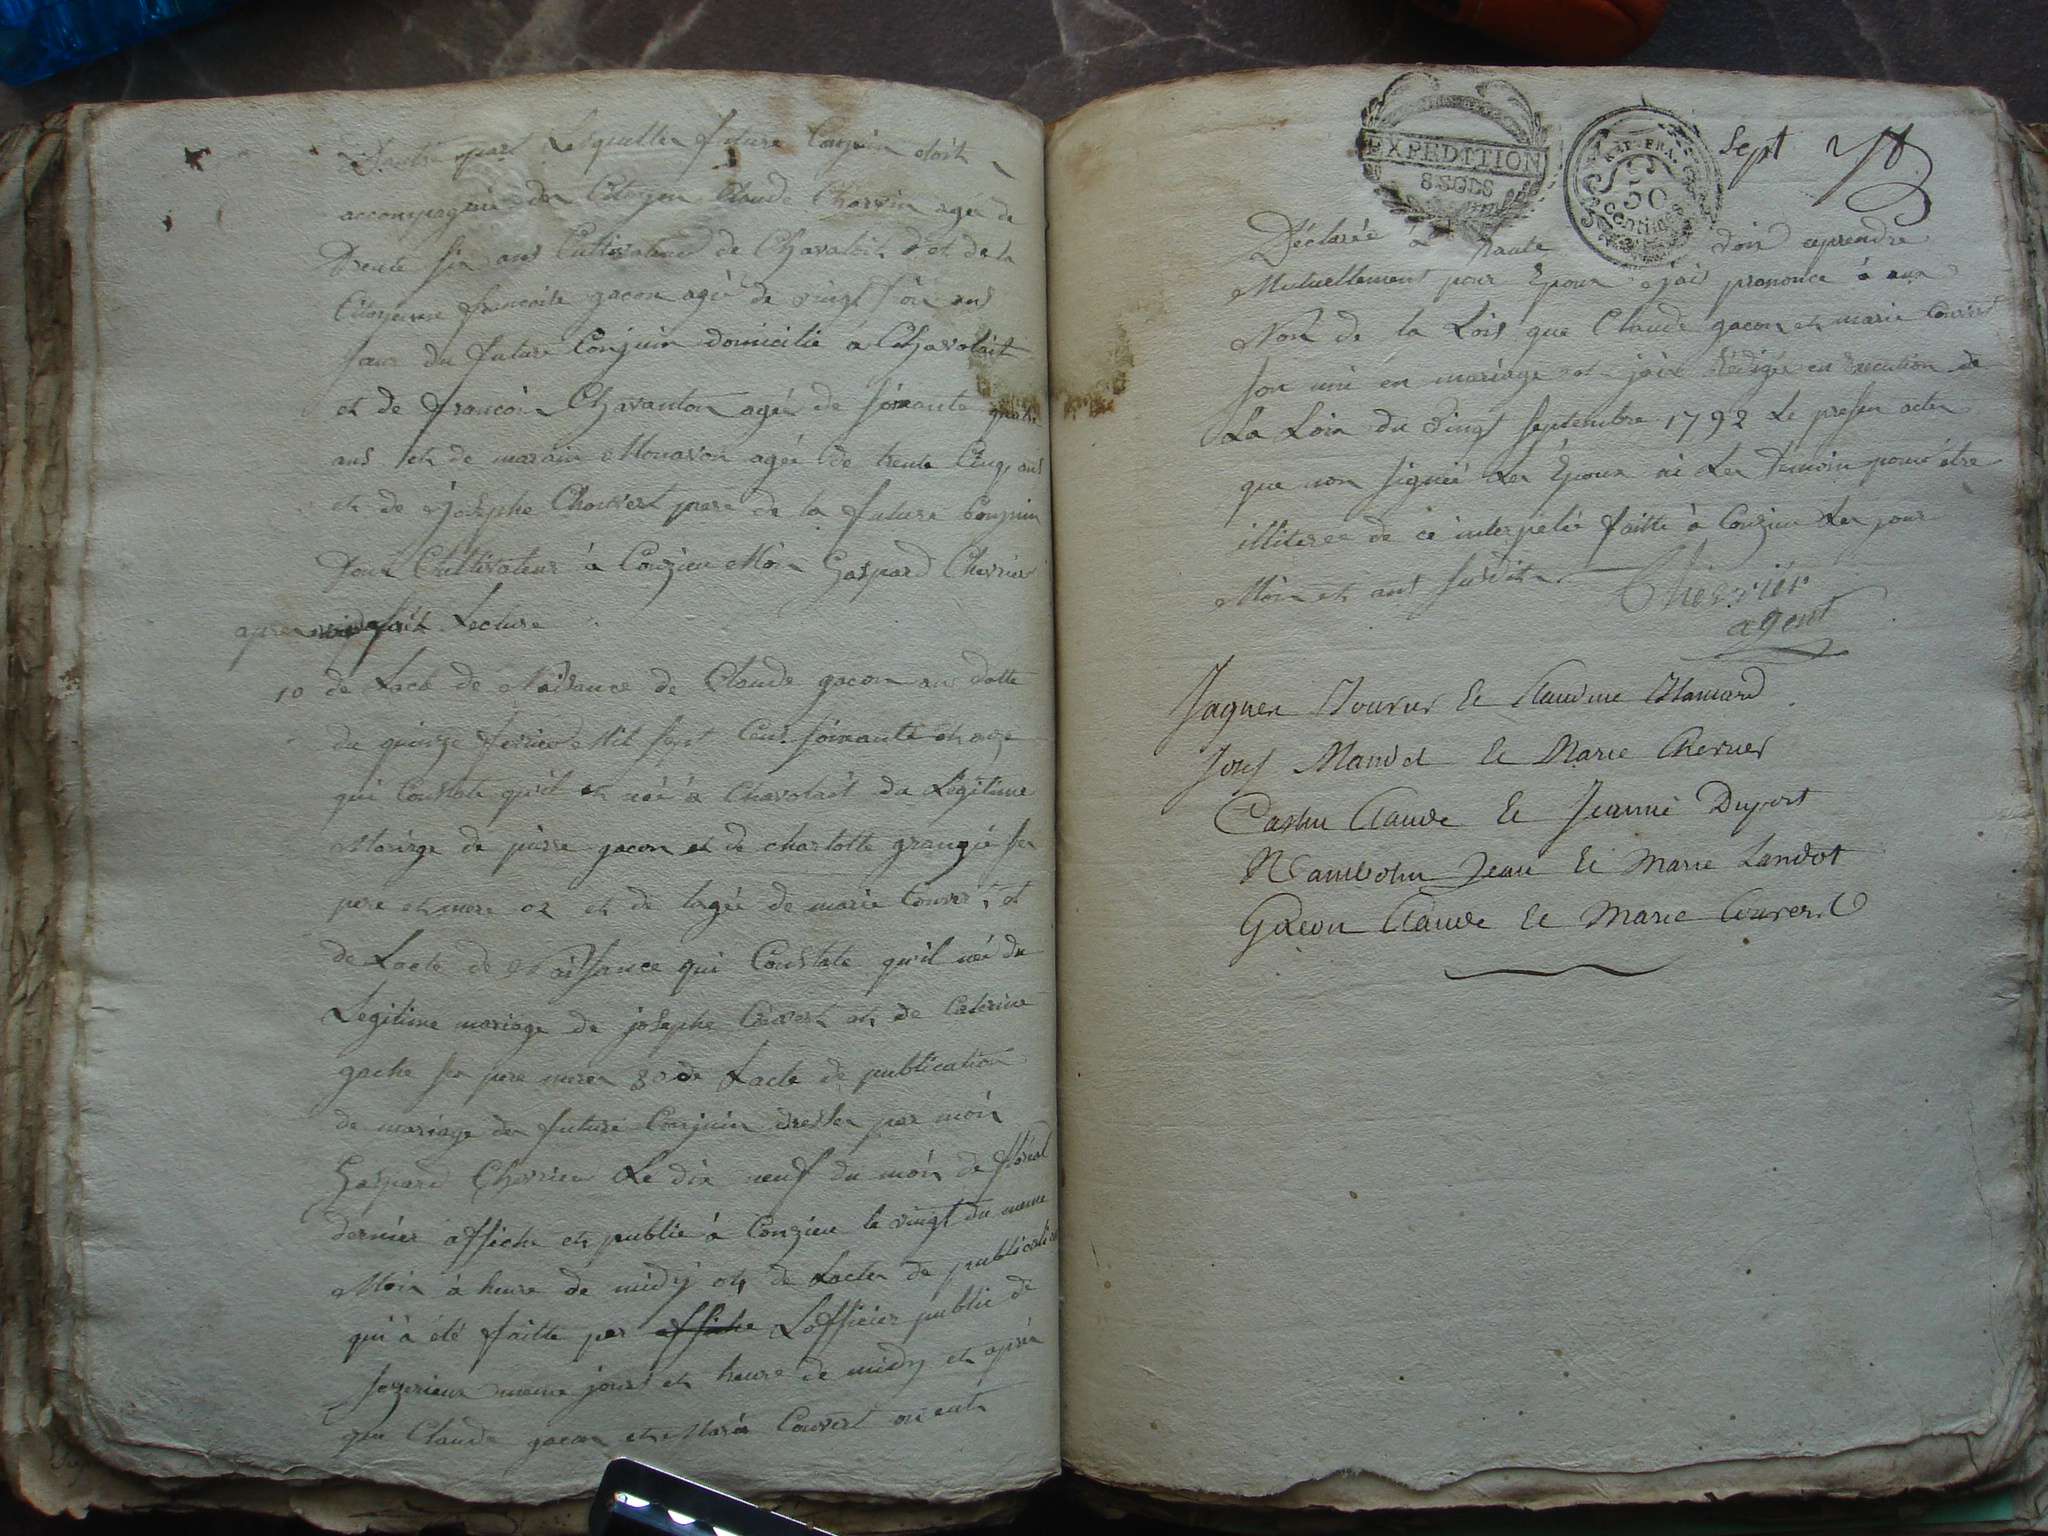 D'autre part Lesquelles future Conjoin etoit
accompagnie du Citoyen Claude Chervin agée de
trente six ans Cultivateur de Chavaloit et de la
Citoyenne francoise gacon agée de vingt ans
saur du future Conjoin domicilié a Chavoloit
et de francois Chavanton agée de soixante quatre
ans et de Monavon agée de trente Cinq ans
et de josephe Chouvert pere de la future Conjoin
tous Cultivateur à Conzieu Moi Gaspard Chevrier
apres avoir fait Lecture
10 de Lacte de Naisance de Claude gacon an datte
du quinze Mil sept Cent soixante et onze
qui Constate qu'il et née a Chavolait du Légitime
Mariage de piere gacon et de charlotte grangié ser
pere et mere 02 et de lagée de marie Couvert et
de Lacte de Naissance qui Constate qu'il née du
Legitime mariage de josephe Couvert et de Caterine
gache ser pere merer 30 de Lacte de publication
de mariage der future Conjoin dresser par moi
Gaspard Chevrier Le dix neuf du mois de floréal
dernier affiche et publie à Conzieu le vingt du meme
Mois à heure de midy et de Lacter de publication
qui à été faitte par affiche Lofficier public de
meme jours et heure de midy et après
que Claude gacon et Marie Couvert on eut
EXPEDITION
8 SOLS
REP. FRA.
50
centimes
Sept
Déclarée à haute voix ceprendre
Mutuellement pour Epoux jais prononce à aux
Nom de la Lois que Claude gacon et marie Couvert
son uni en mariage et jaix Rédigée en Execution de
La Loix du vingt septembre 1792 Le presen acter
que non signée Ler Epoux ni Ler temoin pour étre
illiteree de ce interpelée faitte à Conzieu Ler jour
Mois et ans susdit
Chevrier
agent
Jaquer Bourur et Claudine
Josef Mandet et Marie Cherver
Castin Claude et Jeanne Duport
Jean et Marie Landot
Gacon Claude et Marie Couvert